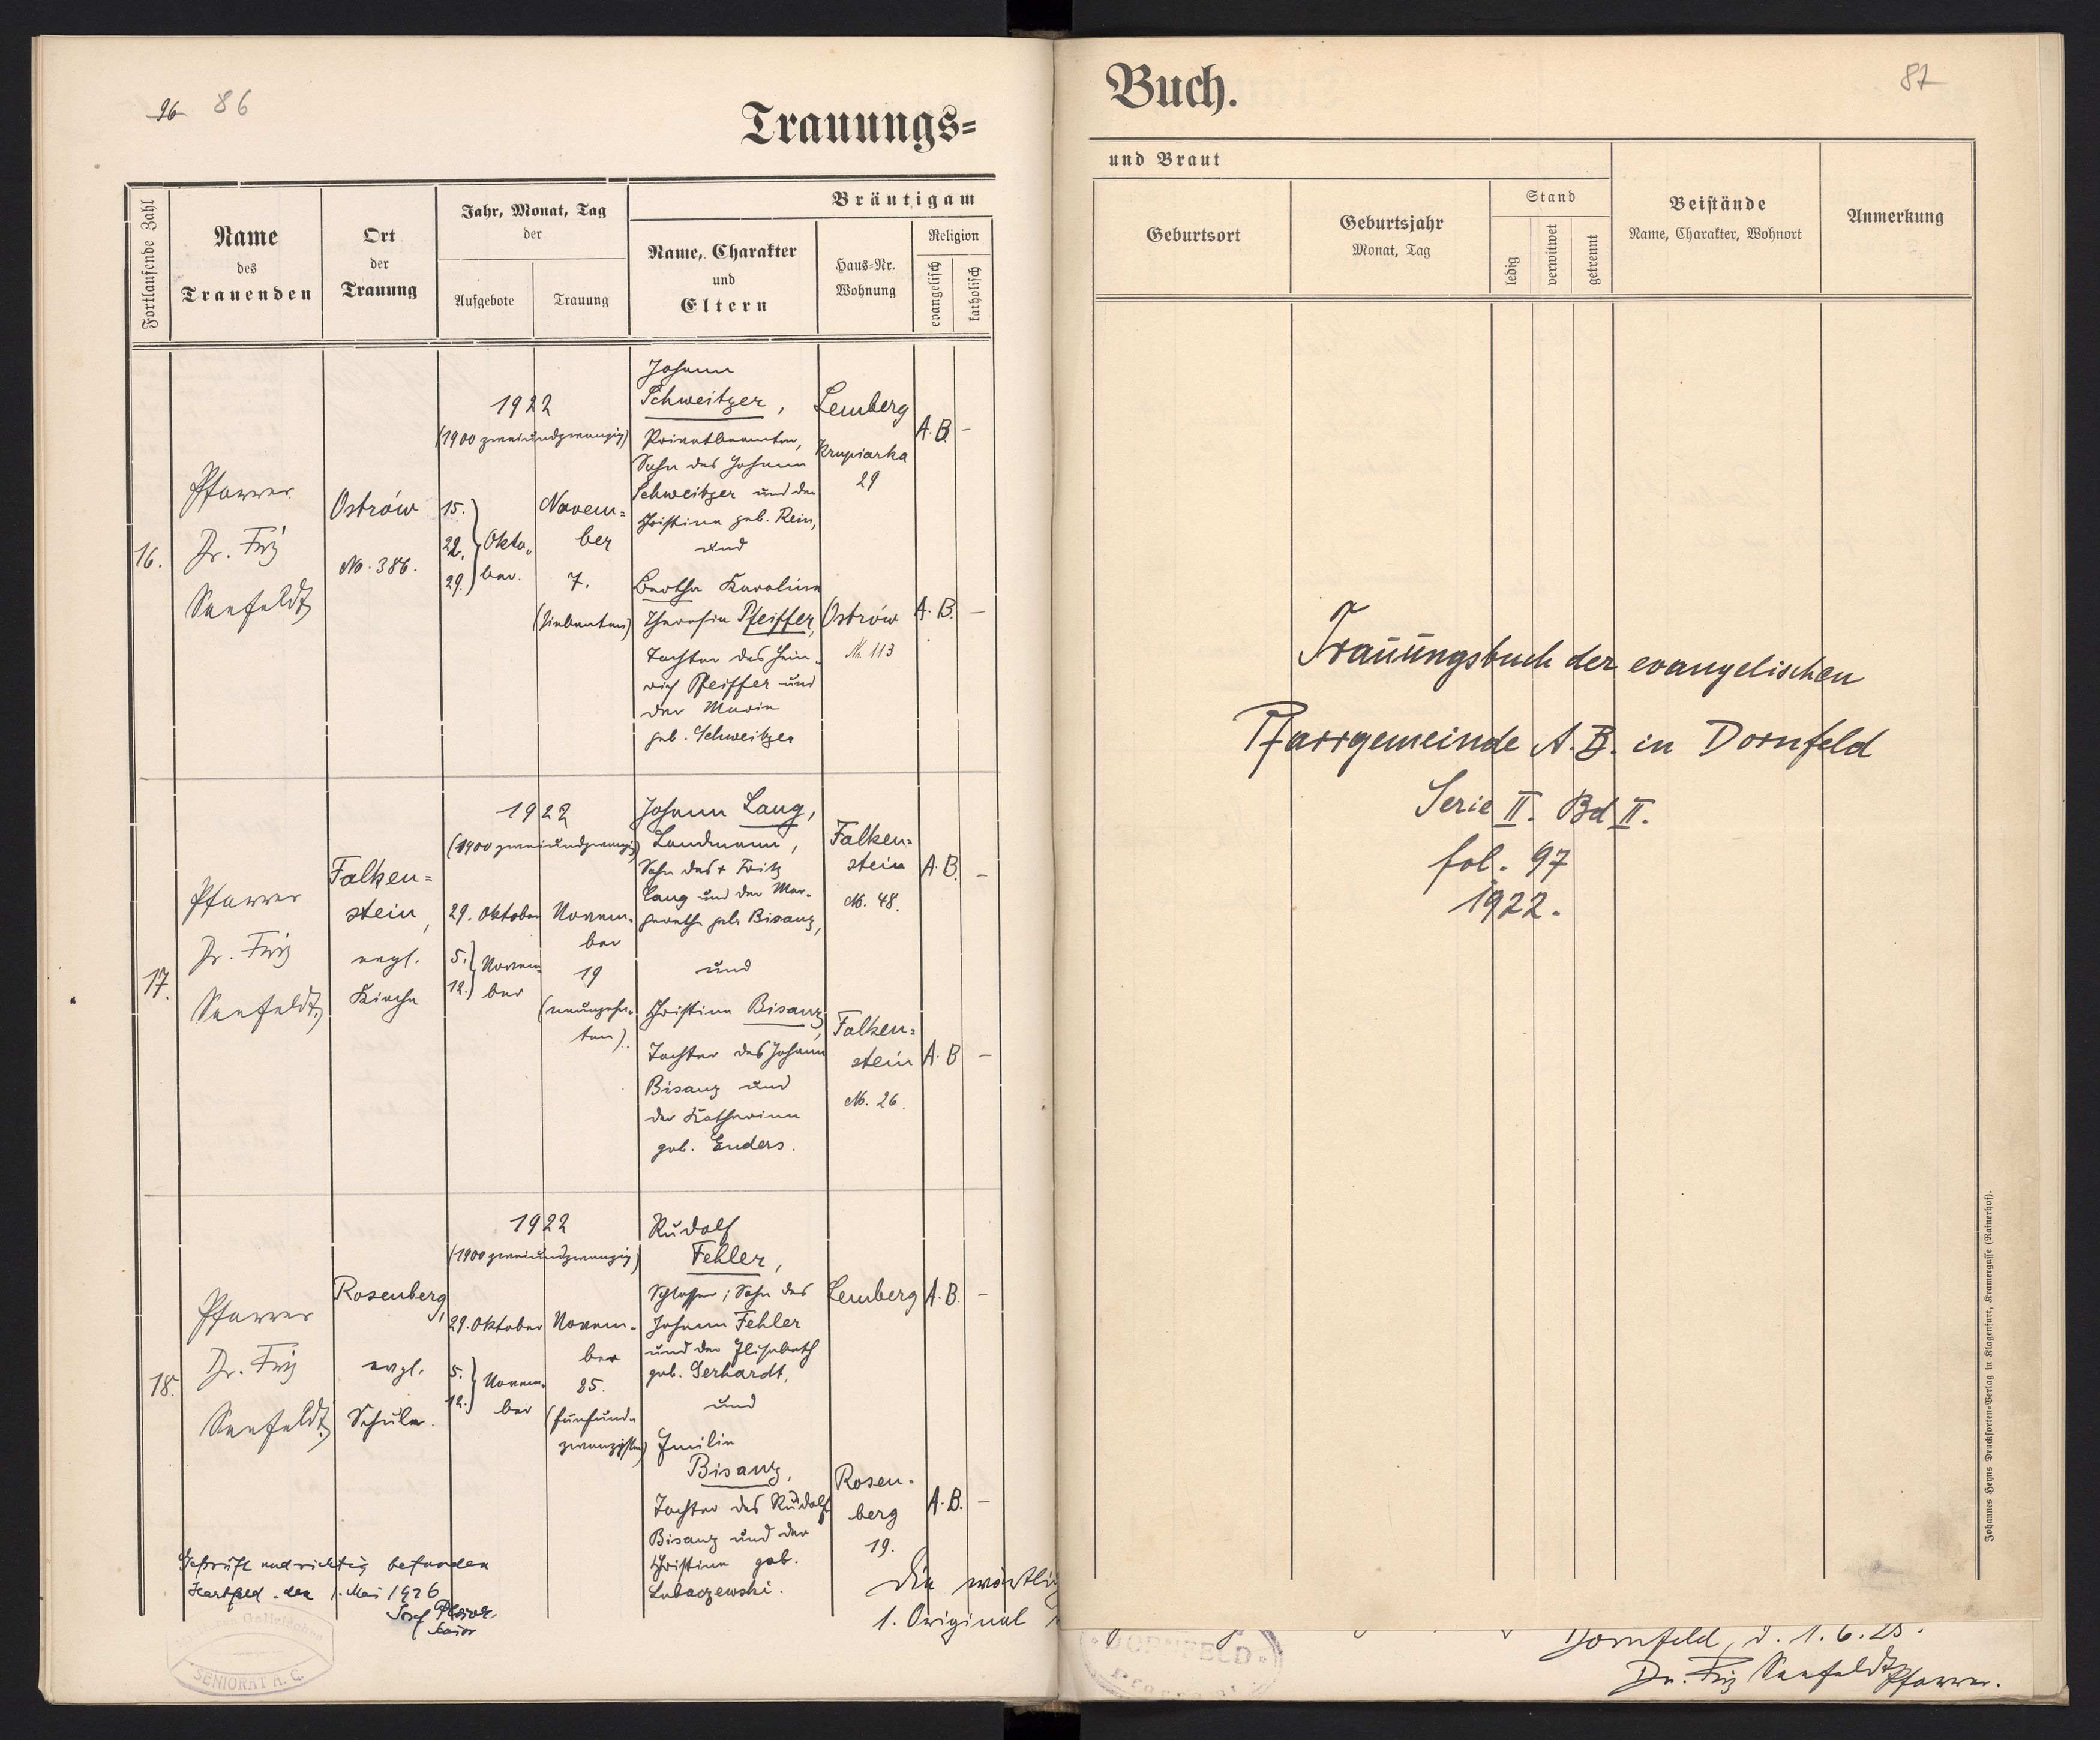 96 86
Trauungs=
Fortlaufende Zahl
Name
des
Trauenden
Ort
der
Trauung
Jahr, Monat, Tag
der
Aufgebote
Trauung
Bräutigam
Name, Charakter
und
Eltern
Haus=Nr.
Wohnung
Religion
evangelisch
katholisch
16.
Pfarrer
Dr. Friz
Seefeldt
Ostrów
No. 386.
1922
(1900 zweiundzwanzig)
15.
22. Okto-
29. ber.
Novem=
ber
7.
(siebenten)
Johann
Schweitzer,
Privatbeamter,
Sohn des Johann
Schweitzer und der
Christine geb. Rein,
und
Bertha Karoline
Theresia Pfeiffer,
Tochter des Hein-
rich Pfeiffer und
der Maria
geb. Schweitzer
Lemberg
Krupiarka
29
A.B. –
Ostrów
No. 113
A.B. –
17.
Pfarrer
Dr. Friz
Seefeldt
Falken=
stein,
evgl.
Kirche
1922
(1900 zweiundzwanzig)
29. Oktober
5. Novem-
12. ber
Novem-
ber
19
(neunzehn-
ten).
Johann Lang,
Landmann,
Sohn des + Fritz
Lang und der Mar-
garetha geb. Bisanz,
und
Christine Bisanz,
Tochter des Johann
Bisanz und
der Katharina
geb. Enders.
Falken=
stein
No. 48.
A.B. –
Falken=
stein
No. 26.
A.B –
18.
Pfarrer
Dr. Friz
Seefeldt
Rosenberg,
evgl.
Schule.
1922
(1900 zweiundzwanzig)
29. Oktober
5. Novem-
12. ber
Novem-
ber
25.
(fünfund-
zwanzigsten)
Rudolf
Fehler,
Schlosser; Sohn des
Johann Fehler
und der Elisabeth
geb. Gerhardt,
und
Emilie
Bisanz,
Tochter des Rudolf
Bisanz und der
Christine geb.
Lubaczewski.
Lemberg
A.B. –
Rosen-
berg
19.
A.B. –
Geprüft und richtig befunden
Hartfeld den 1. Mai 1926
Josef
Senior
SENIORAT A. C.
Die wörtli
1. Original
Buch.
87
und Braut
Geburtsort
Geburtsjahr
Monat, Tag
Stand
ledig
verwitwet
getrennt
Beistände
Name, Charakter, Wohnort
Anmerkung
Trauungsbuch der evangelischen
Pfarrgemeinde A.B. in Dornfeld
Serie II. Bd II.
fol. 97
1922.
Johannes Heyns Drucksorten=Verlag in Klagenfurt, Kramergasse (Rainerhof).
DORNFELD
Dornfeld, d. 1.6.25.
Dr. Friz Seefeldt Pfarrer.